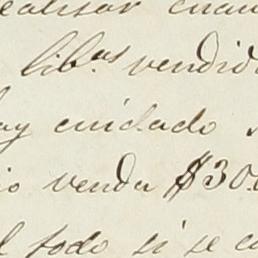 ealisar cuan
lib.os vendid
ay cuidado
io venda $30
l todo si se c